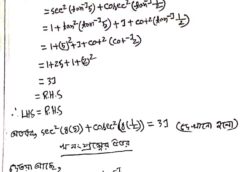 = sec²(tan⁻¹5) + cosec²(tan⁻¹ 1/2)
= 1 + tan²(tan⁻¹5) + 1 + cot²(tan⁻¹ 1/2)
= 1 + (5)² + 1 + cot²(cot⁻¹2)
= 1 + 25 + 1 + (2)²
= 31
= R.H.S
∴ LHS = R.H.S
sec²(g(5)) + cosec²(g(1/2)) = 31 (দেখানো হলো)